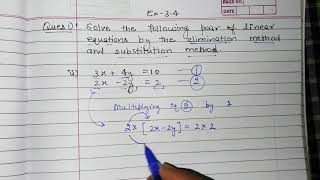 PAGE NO.
Ex-3.4
Ques1) Solve the following pair of linear
equations by the elimination method
and substitution method.
3x + 4y = 10 — ①
2x - 2y = 2 — ②
Multiplying eq ② by 2
2x [2x-2y] = 2x2